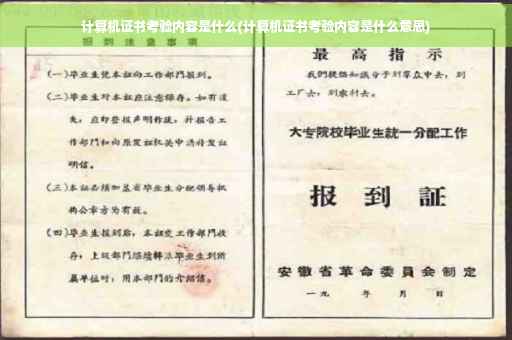 计算机证书考验内容是什么(计算机证书考验内容是什么意思)
报到注意事项
(一)毕业生凭本证向工作部门报到。
(二)毕业生对本证应注意保存。如有遗
失,应即登报声明作废,并报告工
作部门和向原发证机关申请补发证
明信。
(三)本证必须加盖省毕业生分配领导机
构公章方为有效。
(四)毕业生报到后,本证交工作部门收
存;上级部门继续转派毕业生到所
属单位时,用本部门的介绍信。
最高指示
我们提倡知识分子到羣众中去,到
工厂去,到农村去。
大专院校毕业生统一分配工作
报到证
安徽省革命委员会制定
一九 年 月 日